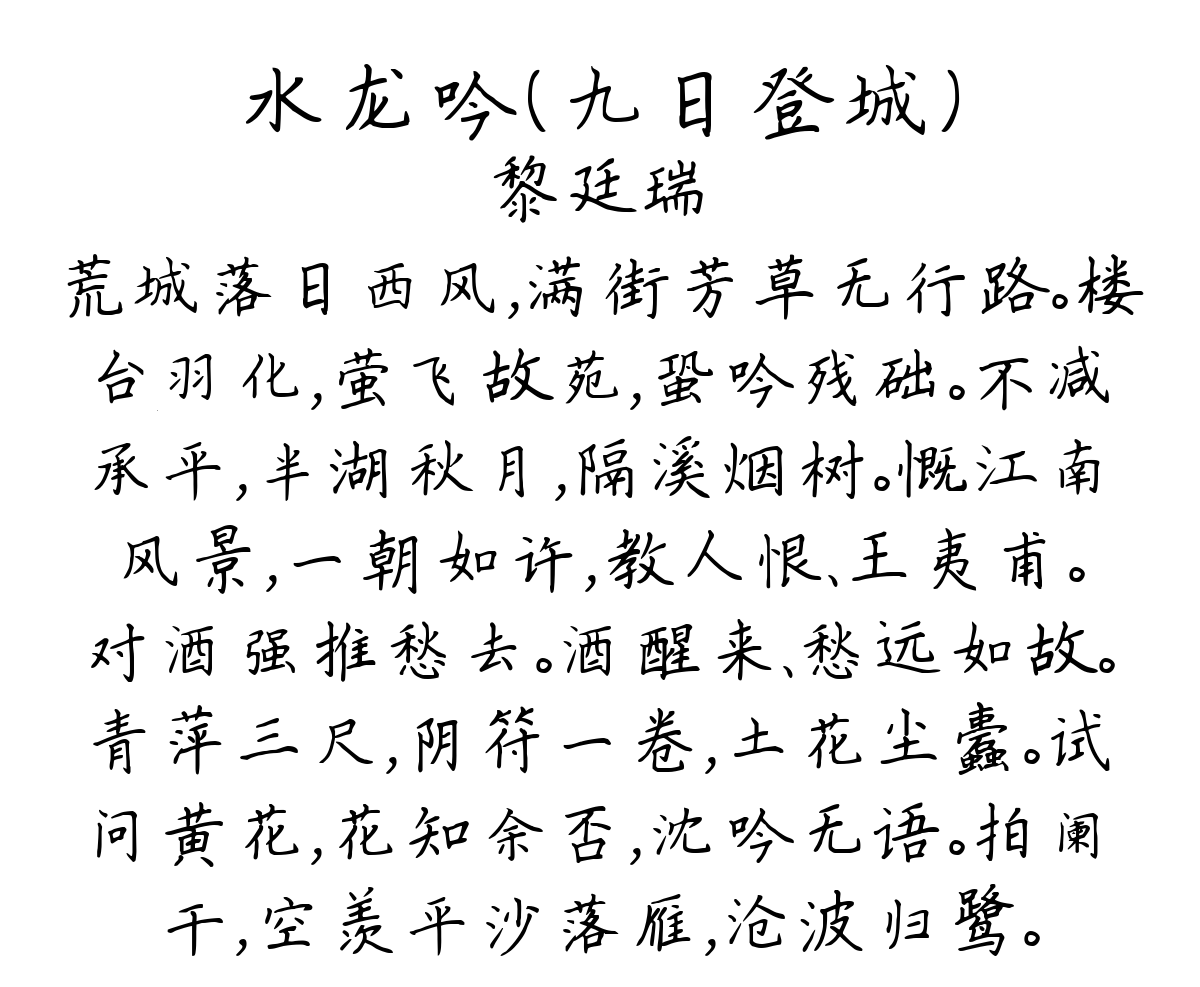 水龙吟(九日登城)
黎廷瑞
荒城落日西风,满街芳草无行路。楼
台羽化,萤飞故苑,蛩吟残础。不减
承平,半湖秋月,隔溪烟树。慨江南
风景,一朝如许,教人恨、王夷甫。
对酒强推愁去。酒醒来、愁远如故。
青萍三尺,阴符一卷,土花尘蠹。试
问黄花,花知余否,沈吟无语。拍阑
干,空羡平沙落雁,沧波归鹭。